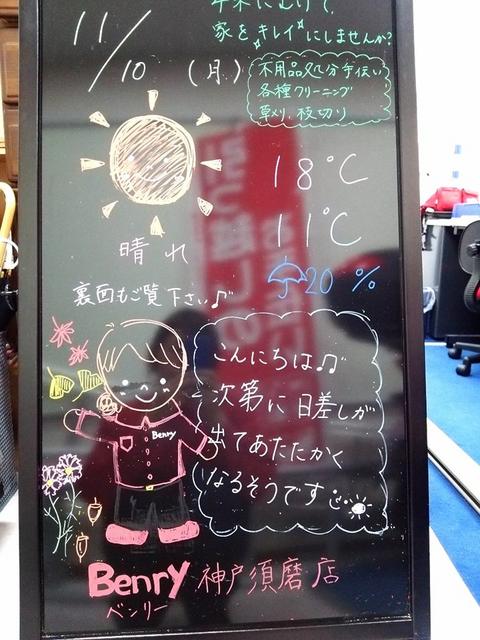 年末にむけて、
家をキレイにしませんか?
11/10 (月)
不用品処分手伝い
各種クリーニング
草刈り、枝切り
18℃
11℃
晴れ
20%
裏面もご覧下さい♪
こんにちは♫
次第に日差しが
出てあたたかく
なるそうです
Benry
Benry 神戸須磨店
ベンリー